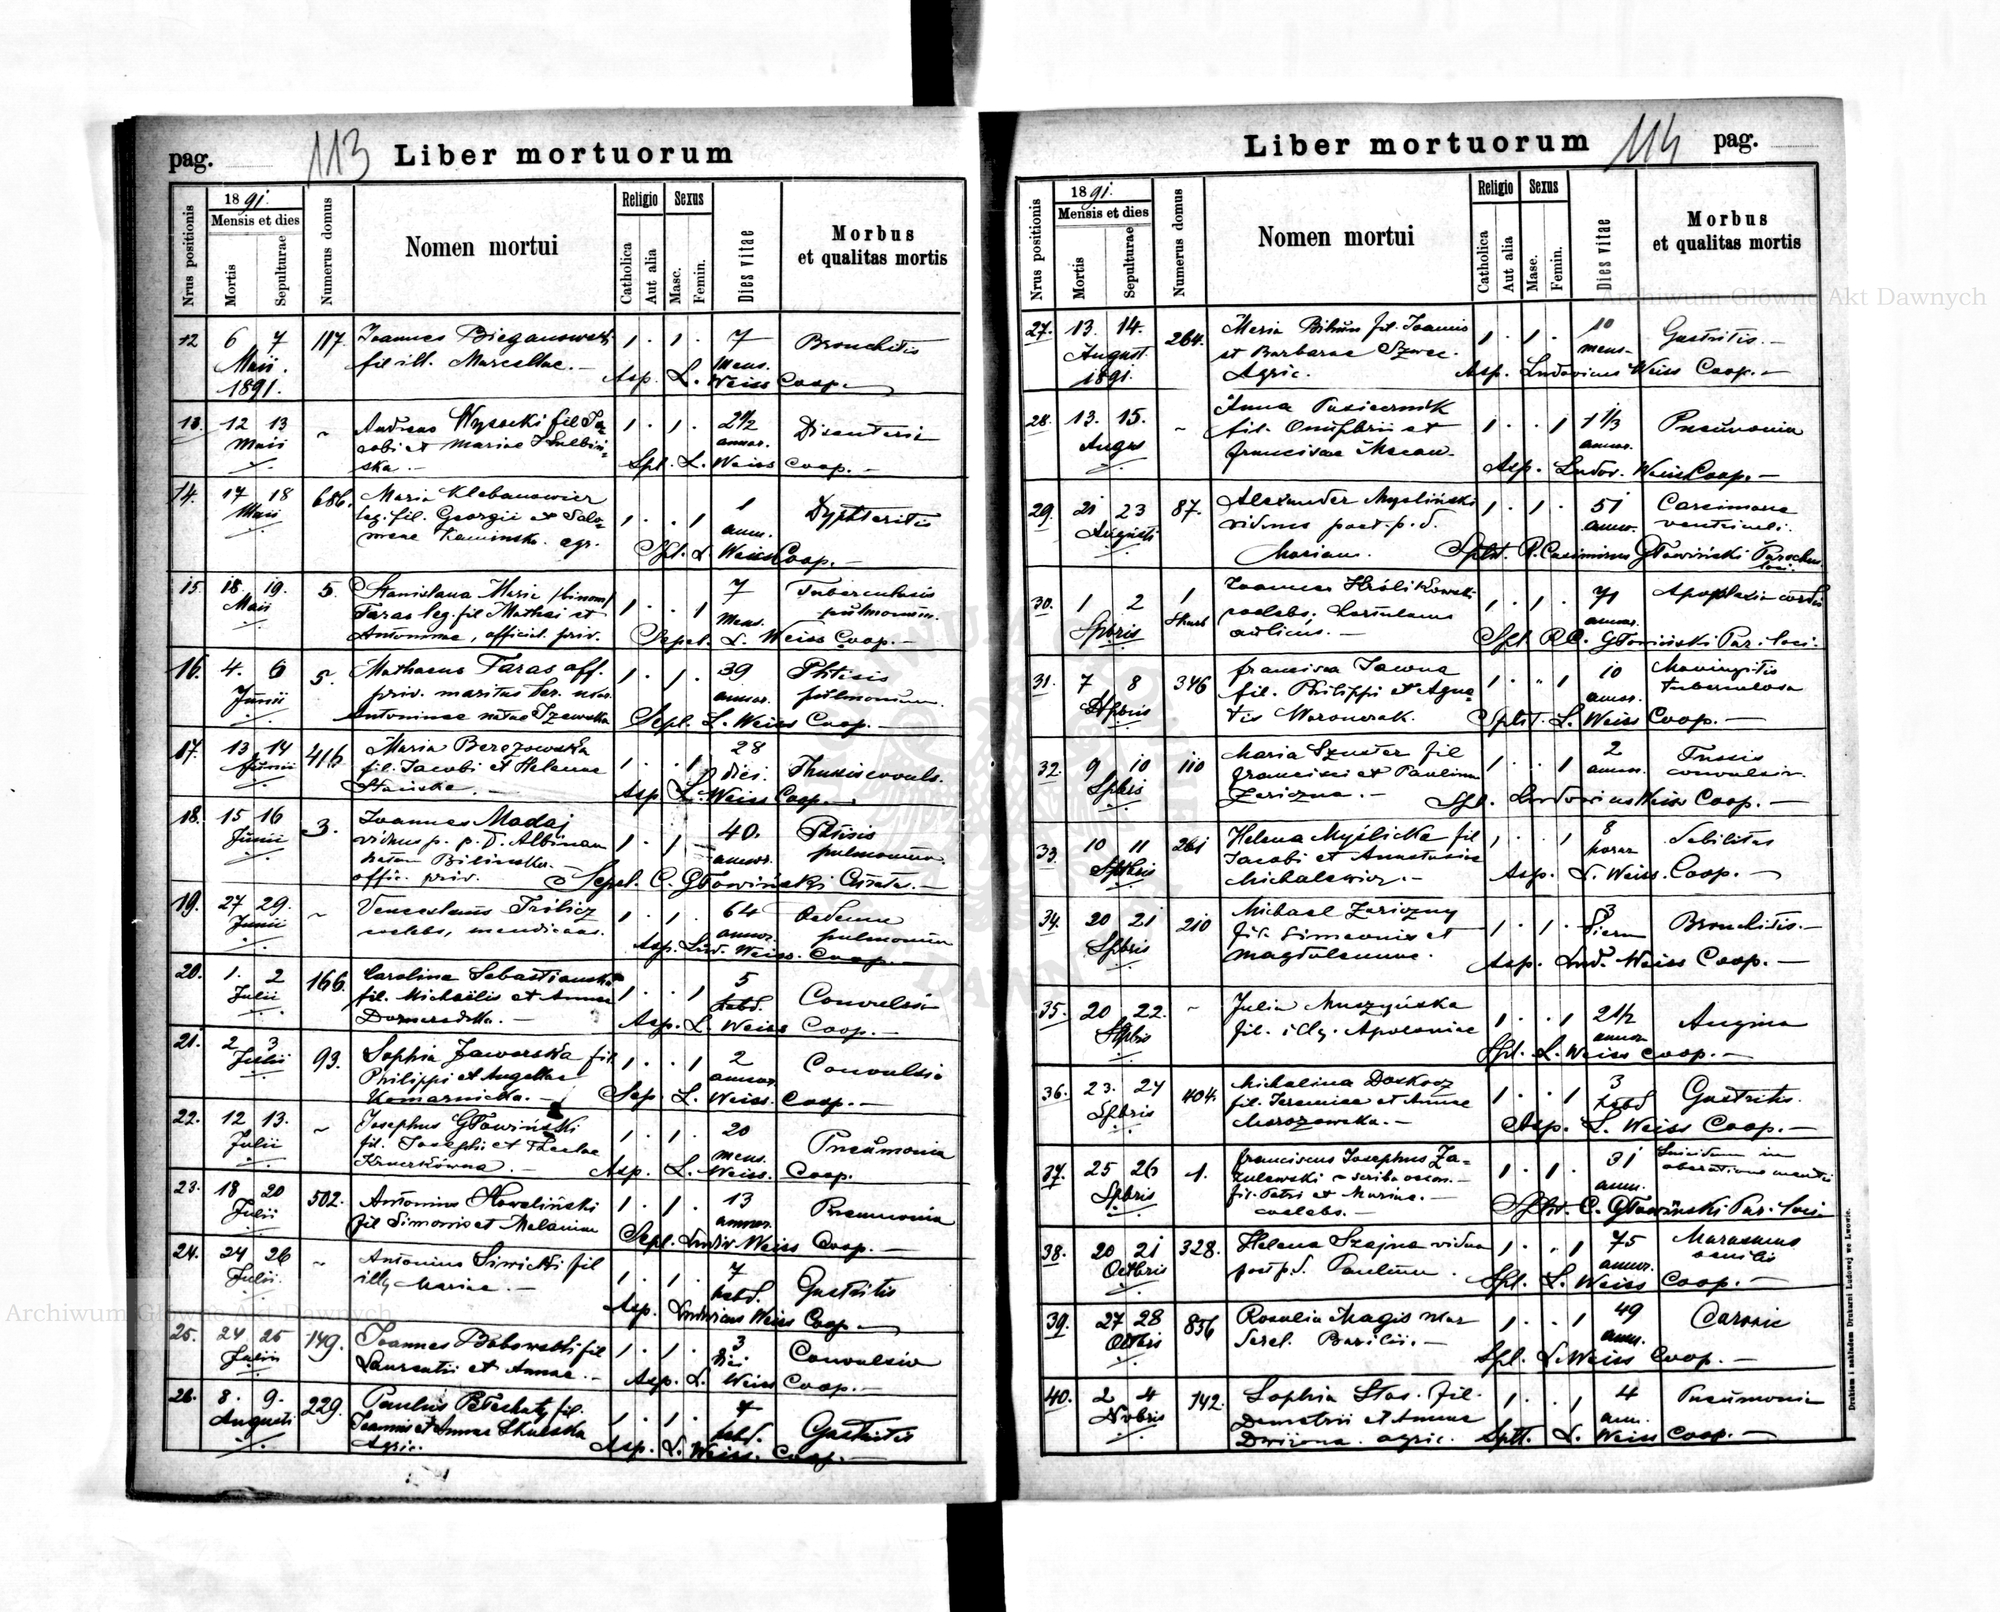 pag.
113
Liber mortuorum
Nrus positionis
1891.
Mensis et dies
Mortis
Sepulturae
Numerus domus
Nomen mortui
Religio
Catholica
Aut alia
Sexus
Masc.
Femin.
Dies vitae
Morbus
et qualitas mortis
12 6 7 117. Joannes Bieganowski 1 . 1 . 7 Bronchitis
Maii. fil ill. Marcellae. — mens.
1891. Asp. L. Weiss Coop. —
13. 12 13 ~ Andreas Wysocki fil Ja 1 . 1 . 2 1/2 Disenteria
Maii cobi et Mariae annor.
ska. — Spl. L. Weiss Coop. —
14. 17 18 686. Maria Klebanowicz 1 . . 1 1 Dyphteritis
Maii leg. fil. Georgii et Salo- ann.
meae Kaminska. agr. Spl. L. Weiss Coop. —
15. 18. 19. 5. Stanislava Maria (binom) 1 . . 1 7 Tuberculosis
Maii Taras leg. fil Mathaei et mens. pulmonum.
Antoninae, official. priv. Sepel. L. Weiss Coop. —
16. 4. 6 5. Mathaeus Taras off. 1 . 1 . 39 Phtisis
Junii priv. maritus annor. pulmonum.
Antoninae natae Sepl. L. Weiss Coop. —
17. 13 14 416. Maria Berezowska 1 . . 1 28 Thussis convuls.
Junii fil. Jacobi et Helenae diei.
Asp. L. Weiss Coop. —
18. 15 16 3. Joannes Madaj 1 . 1 — 40. Ptisis
Junii viduus p. p. d. Albinam annor. pulmonum.
natam Bilinska. —
offic. priv. Sepel. C. Głowiński Curatus. —
19. 27 29. ~ Venceslaus 1 . 1 . 64 Oedema
Junii coelebs, mendicans. annor. pulmonum
Asp. Lud. Weiss. Coop. —
20. 1. 2 166. Carolina Sebastianska 1 . . 1 5 Convulsio
Julii fil. Michaëlis et Annae hebd.
Asp. L. Weiss Coop. —
21. 2 3 93. Sophia Jaworska fil 1 . . 1 2 Convulsio
Julii Philippi et Angellae annor.
Komarnicka. — Sep. L. Weiss. Coop. —
22. 12 13. ~ Josephus Głowiński 1 . 1 . 20 Pneumonia
Julii fil. Josephi et Theclae mens.
Asp. L. Weiss. Coop.
23. 18 20 502. Antonius 1 . 1 . 13 Pneumonia
Julii fil Simonis et Melaniae annor.
Sepl. Ludov Weiss Coop. —
24. 24 26 ~ Antonius Siwicki fil 1 . 1 . 7 Gastritis
Julii. illg Mariae. — hebd.
Asp. Ludovicus Weiss Coop. —
25. 24 25 149. Joannes Bobowski fil 1 . 1 . 3 Convulsio
Julii Laurentii et Annae. — diei
Asp. L. Weiss Coop. —
26. 8. 9. 229. Paulus fil. 1 . 1 . 7 Gastritis
Augusti Joannis et Annae Skulska hebd.
Agric. Asp. L. Weiss. Coop. —
Liber mortuorum
114
pag.
Nrus positionis
1891.
Mensis et dies
Mortis
Sepulturae
Numerus domus
Nomen mortui
Religio
Catholica
Aut alia
Sexus
Masc.
Femin.
Dies vitae
Morbus
et qualitas mortis
27. 13. 14. 264. Maria fil. Joannis 1 . 1 . 10 Gastritis. —
August. et Barbarae Szwec. mens.
1891. Agric. Asp. Ludovicus Weiss Coop. —
28. 13. 15. ~ Anna Pasiecznik 1 . . 1 1 1/3 Pneumonia
Augus fil. Onufrii et annor.
franciscae Asp. Ludov. Weiss Coop. —
29. 21 23 87. Alexander Mysliński 1 . 1 . 51 Carcinoma
Augusti viduus post. p. d. annor. ventriculi.
Mariam. R. Casimirus Głowiński Parochus
loci.
30. 1 2 1 Joannes Królikowski 1 . 1 . 71 Apoplexia cordis
7bris coelebs, hortulanus annor.
aulicus. — Spl. R. C. Głowiński Par. loci.
31. 7 8 346 francisca Jawna 1 . " 1 10 Meningitis
7bris fil. Philippi et Agne- annor. tuberculosa
tis Woronczak. L. Weiss Coop. —
32. 9 10 110 Maria Szuster fil 1 . . 1 2 Tussis
7bris francisci et Paulina annor. convulsiv.
Zariczna. — Spl. Ludovicus Weiss Coop. —
33. 10 11 261 Helena Myślicka fil 1 . . 1 8 Debilitas
7bris Jacobi et Anastasiae horar
Michalewicz. — Asp. L. Weiss. Coop. —
34. 20 21 210 Michael Zariczny 1 . 1 . 3 Bronchitis. —
7bris fil. Simeonis et dierum
Magdalenae. Asp. Lud. Weiss Coop. —
35. 20 22. ~ Julia Muszyńska 1 . . 1 2 1/2 Angina
7bris fil. illg. Apoloniae annor.
Spl. L. Weiss Coop. —
36. 23. 24 404. Michalina Doskocz 1 . . 1 3 Gastritis.
7bris fil. Jeremiae et Annae hebd
Morozowska. — Asp. L. Weiss Coop. —
37. 25 26 1. franciscus Josephus Za- 1 . 1 . 31 Suicidium in
7bris zulewski ~ scriba oecon. — ann. aberatione mentis
fil. Petri et Mariae. —
coelebs. — C. Głowiński Par. loci
38. 20 21 328. Helena Szajna vidua 1 . " 1 75 Marasmus
Octbris post p. d. Paulum. annor. senilis
Spl. L. Weiss Coop. —
39. 27 28 856 Rosalia Magis 1 . . 1 49
Octbris Basilii. — ann.
Spl. L. Weiss Coop. —
40. 2 4 742. Sophia Stas. fil. 1 . . 1 4 Pneumonia
Nvbris Demetrii et Annae ann.
agric. Splt. L. Weiss Coop. —
Drukiem i nakładem Drukarni Ludowej we Lwowie.
Archiwum Główne Akt Dawnych
Archiwum Główne Akt Dawnych